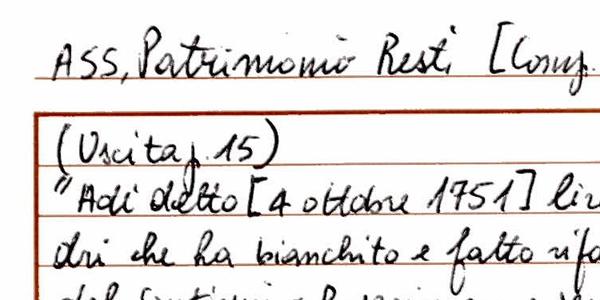 ASS, Patrimonio Resti [Comp.
(Uscita p. 15)
"Adi detto [4 ottobre 1751] liv
dri che ha bianchito e fatto rifa
del